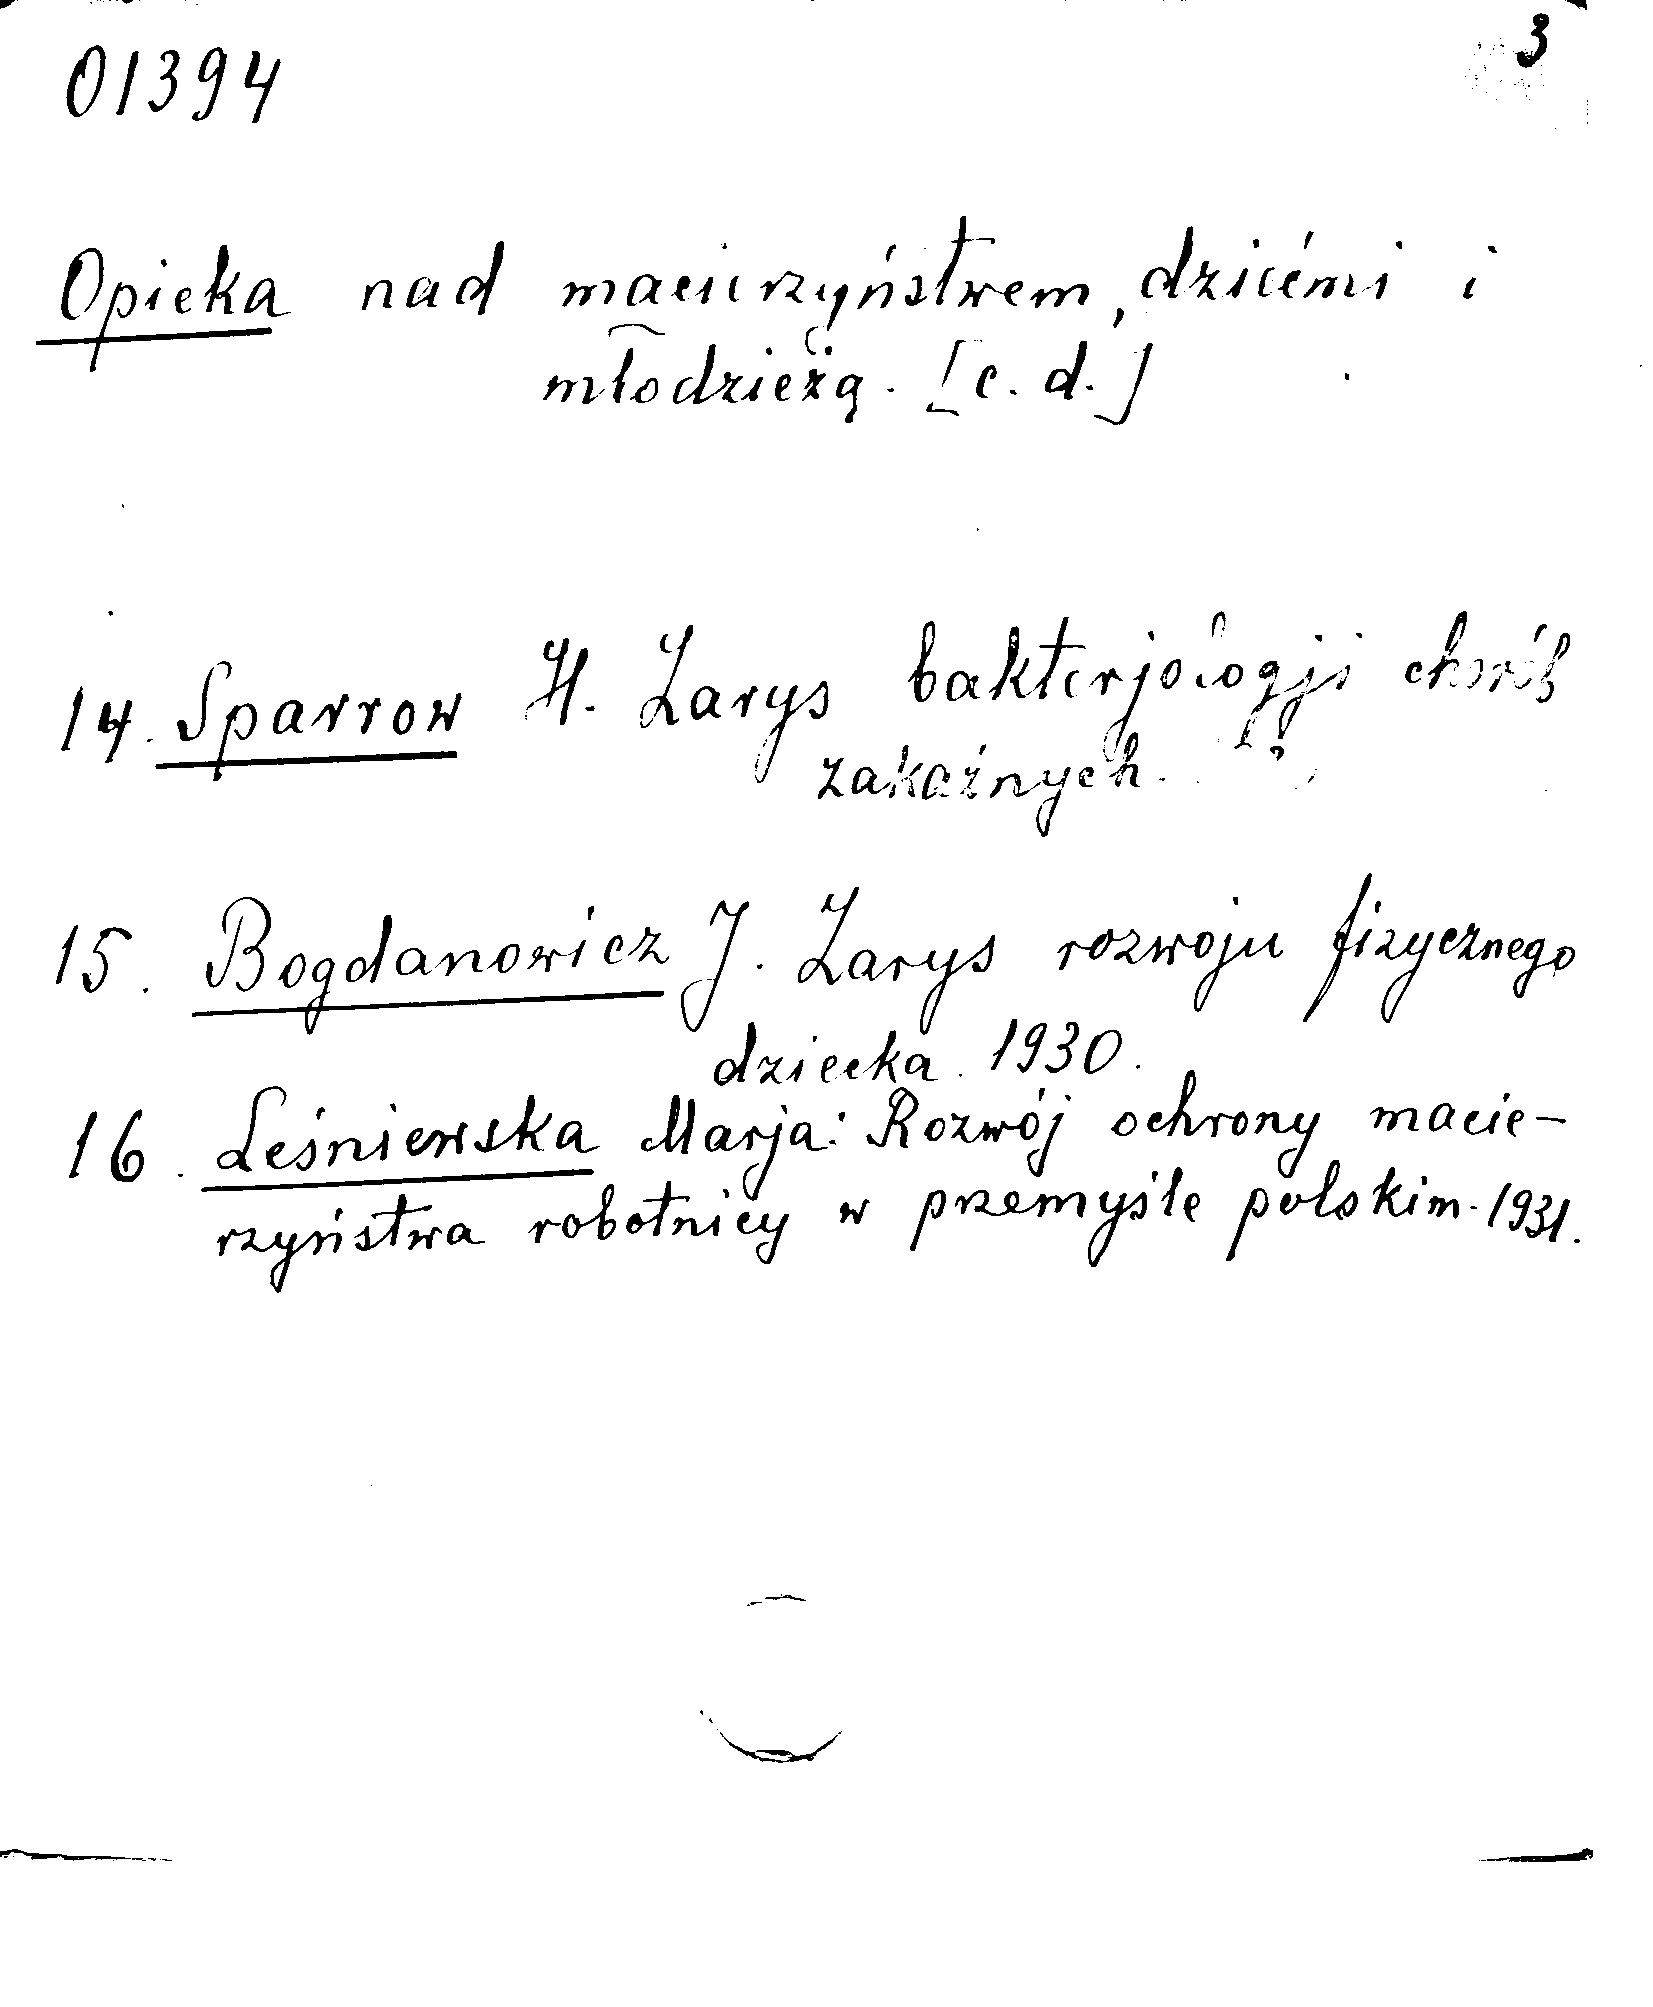 01394
3
Opieka nad macierzyństwem, dziećmi i
młodzieżą. [c. d.]
14. Sparrow H. Zarys bakterjologji chorób
zakaźnych.
15. Bogdanowicz J. Zarys rozwoju fizycznego
dziecka. 1930.
16. Leśniewska Marja: Rozwój ochrony macie-
rzyństwa robotnicy w przemyśle polskim. 1931.